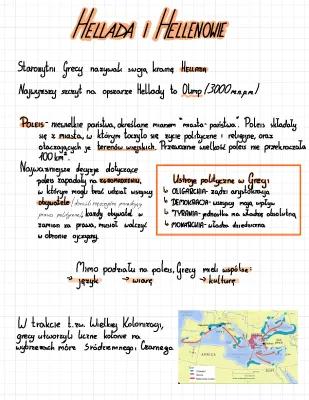 HELLADA I HELLENOWIE
Starożytni Grecy nazywali swoją krainę HELLADĄ
Najwyższy szczyt na obszarze Hellady to Olimp (3000 m.n.p.m)
POLEIS - niewielkie państwa, określane mianem "miasta-państwa". Poleis składały
się z miasta, w którym toczyło się życie polityczne i religijne, oraz
otaczających je terenów wiejskich. Przeważnie wielkość poleis nie przekraczała
100 km²
Najważniejsze decyzje dotyczące
poleis zapadały na zgromadzeniu,
w którym mogli brać udział wszyscy
obywatele
prawa polityczne), każdy obywatel w
zamian za prawa, musiał walczyć
w obronie ojczyzny.
Ustroje polityczne w Grecji
↳ OLIGARCHIA - rządzi arystokracja
↳ DEMOKRACJA - wszyscy mają wpływ
↳ TYRANIA - jednostka ma władzę absolutną
↳ MONARCHIA - władza dziedziczna
Mimo podziału na poleis, Grecy mieli wspólne:
→ język → wiarę → kulturę
W trakcie t.zw. Wielkiej Kolonizacji,
grecy utworzyli liczne kolonie na
wybrzeżach mórz Śródziemnego i Czarnego
AFRICA
EGIPT